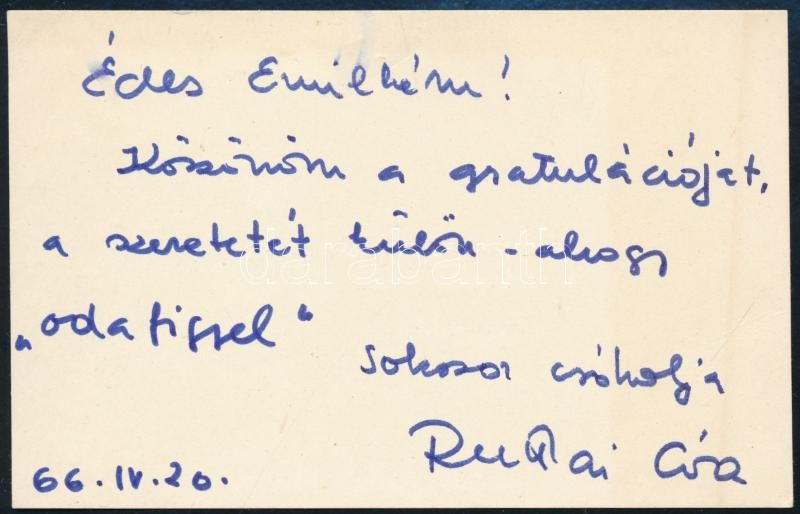 Édes Emilkém!
Köszönöm a gratulációját,
a szeretetét külön - ahogy
„odafigyel"
sokszor csókolja
Ruttkai Éva
66.IV.20.
darabanth